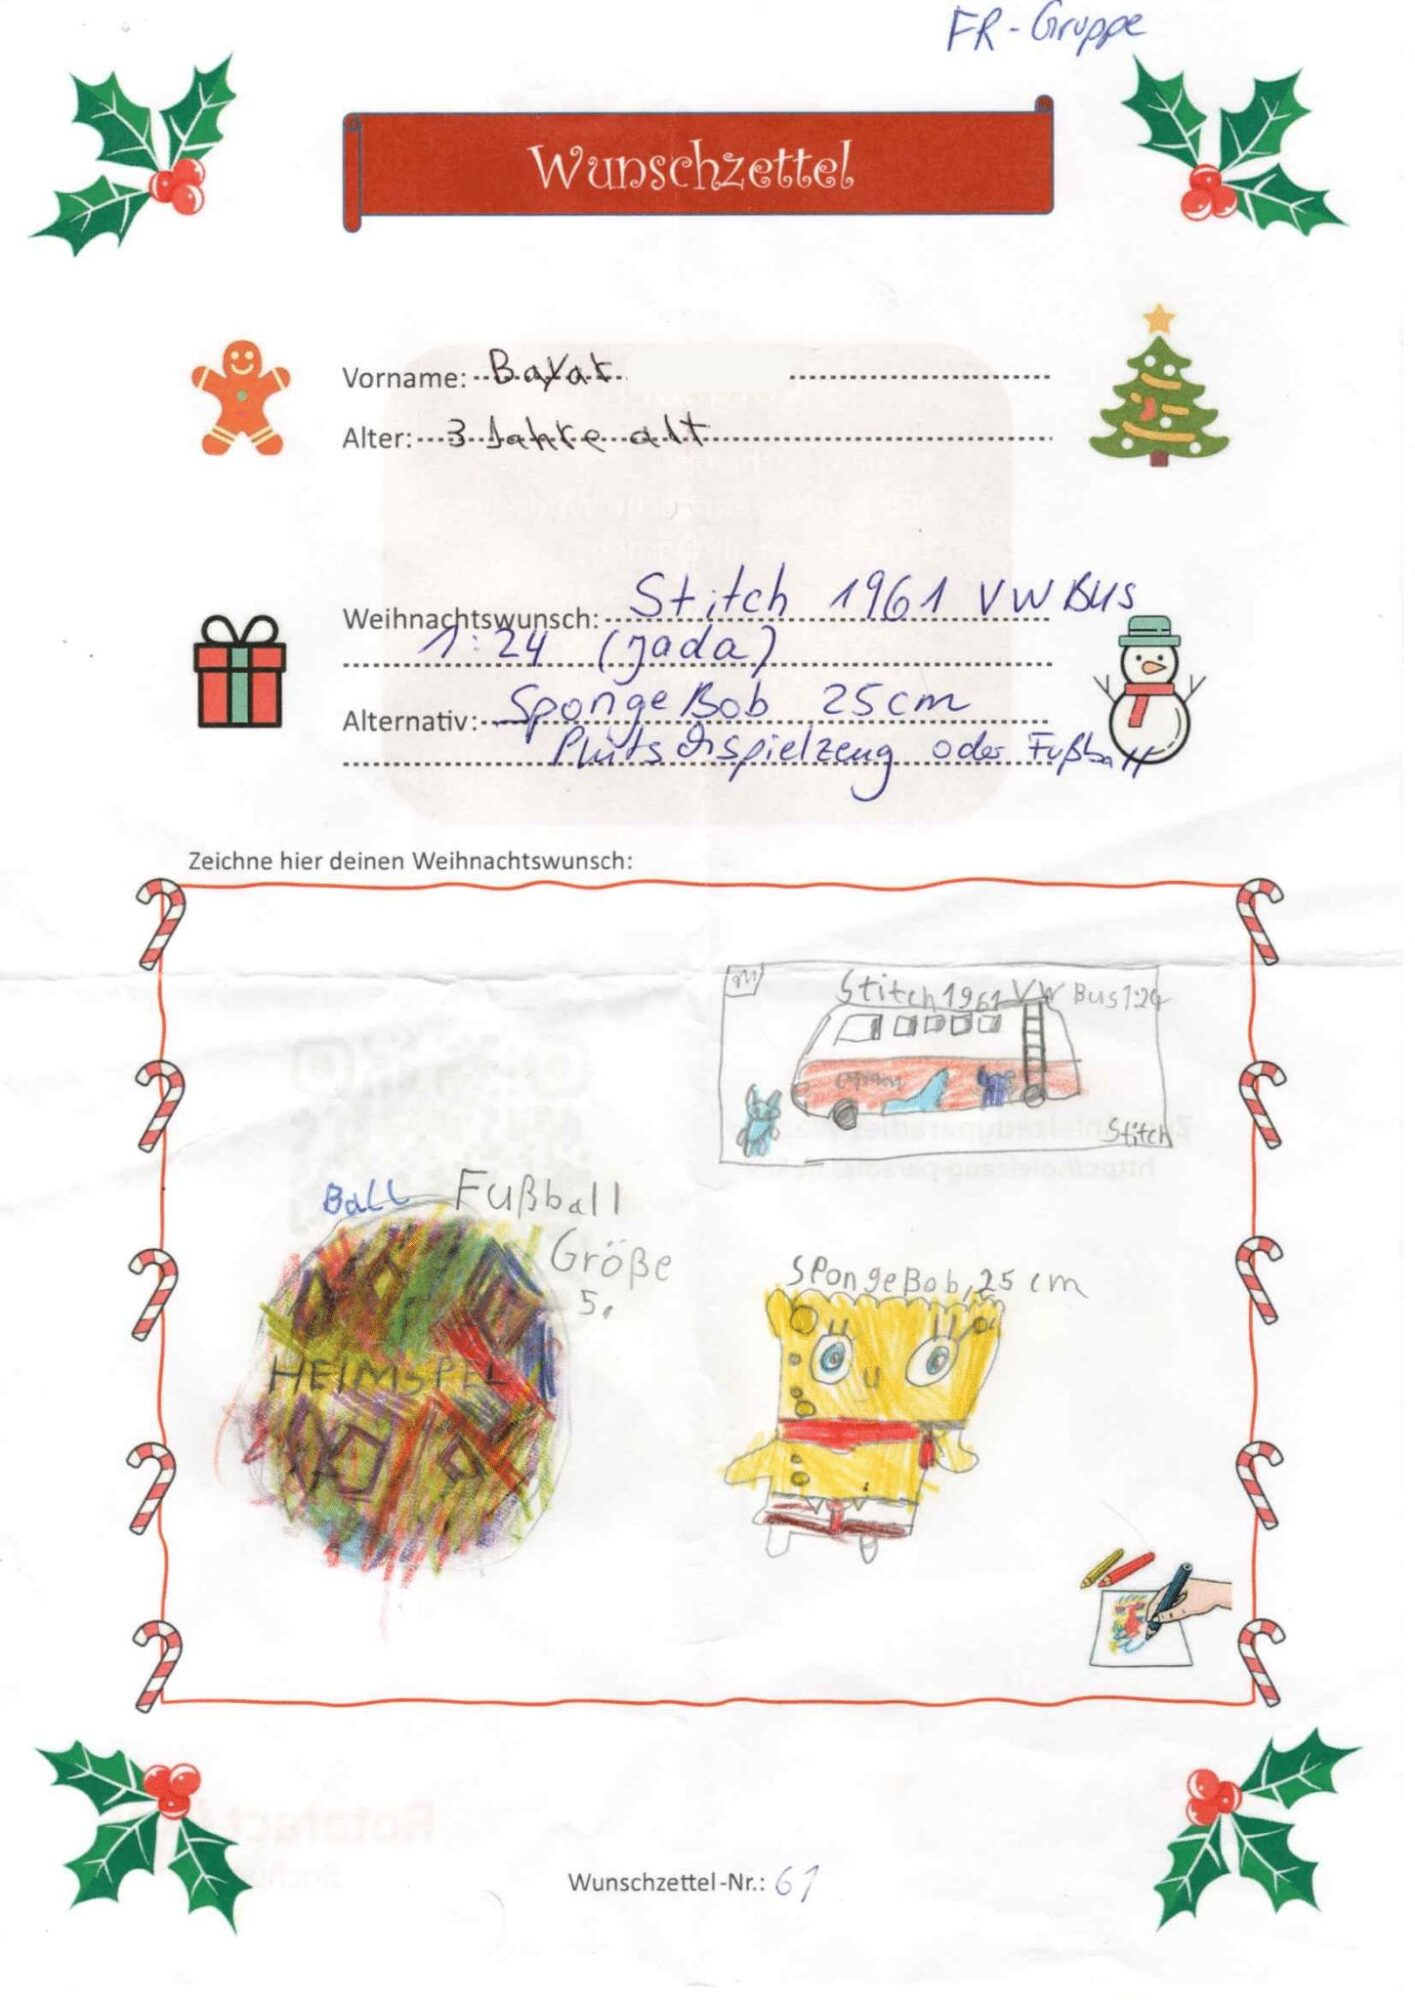 FR-Gruppe
Wunschzettel
Vorname: Bayat
Alter: 3 Jahre alt
Weihnachtswunsch: Stitch 1961 VW Bus
1:24 (Jada)
Alternativ: SpongeBob 25cm
oder Fußball
Zeichne hier deinen Weihnachtswunsch:
Stitch 1961 VW Bus 1:24
Stitch
Ball Fußball
Größe
5.
HEIMSPEL
SpongeBob, 25 cm
Wunschzettel-Nr.: 61